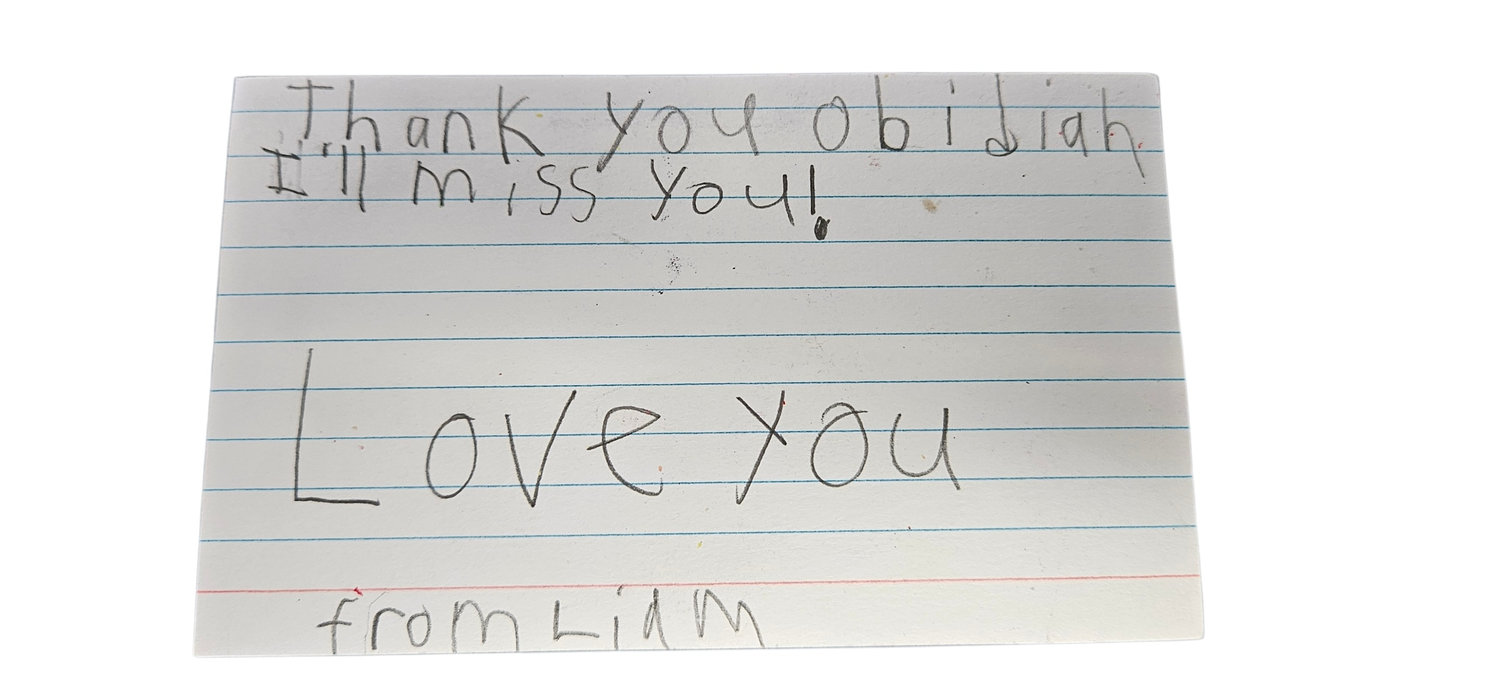 Thank you obidiah
I'll miss you!
Love you
from Liam